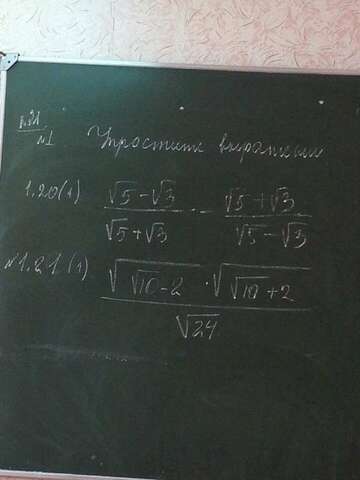 №1 Упростить выражения
1.20(1) (√5-√3)/(√5+√3) - (√5+√3)/(√5-√3)
№1.21(1) (√(√10-2) · √(√10+2))/√24